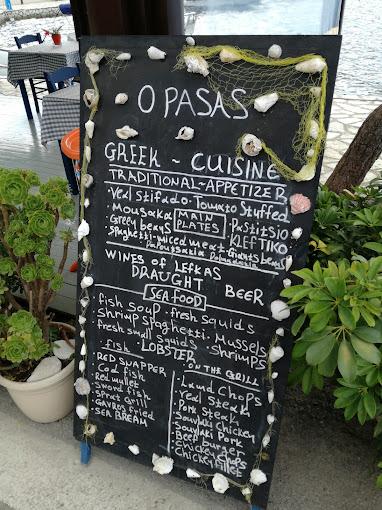 O PASAS
GREEK ~ CUISINE
TRADITIONAL~APPETIZER
• Veal Stifado • Tomato Stuffed
Mousaka MAIN PLATES • Pastitsio
• Green beans KLEFTIKO
Spaghetti-miced meat • Giants beans
WINES OF LEFKAS
DRAUGHT BEER
SEA FOOD
fish soup • fresh squids
shrimp spaghetti • Mussels
fresh small squids • shrimps
• fish • LOBSTER
RED SNAPPER
• Cod fish
• Red mullet
• Sword fish
• Sprat Grill
• GAVROS fried
• SEA BREAM
• ON THE GRILL
• Lamd Chops
• Veal Steak
• Pork Steak
• Souvlaki Chicken
• Souvlaki Pork
• Beef burger
• Chickey Chops
• Chickey Fillet